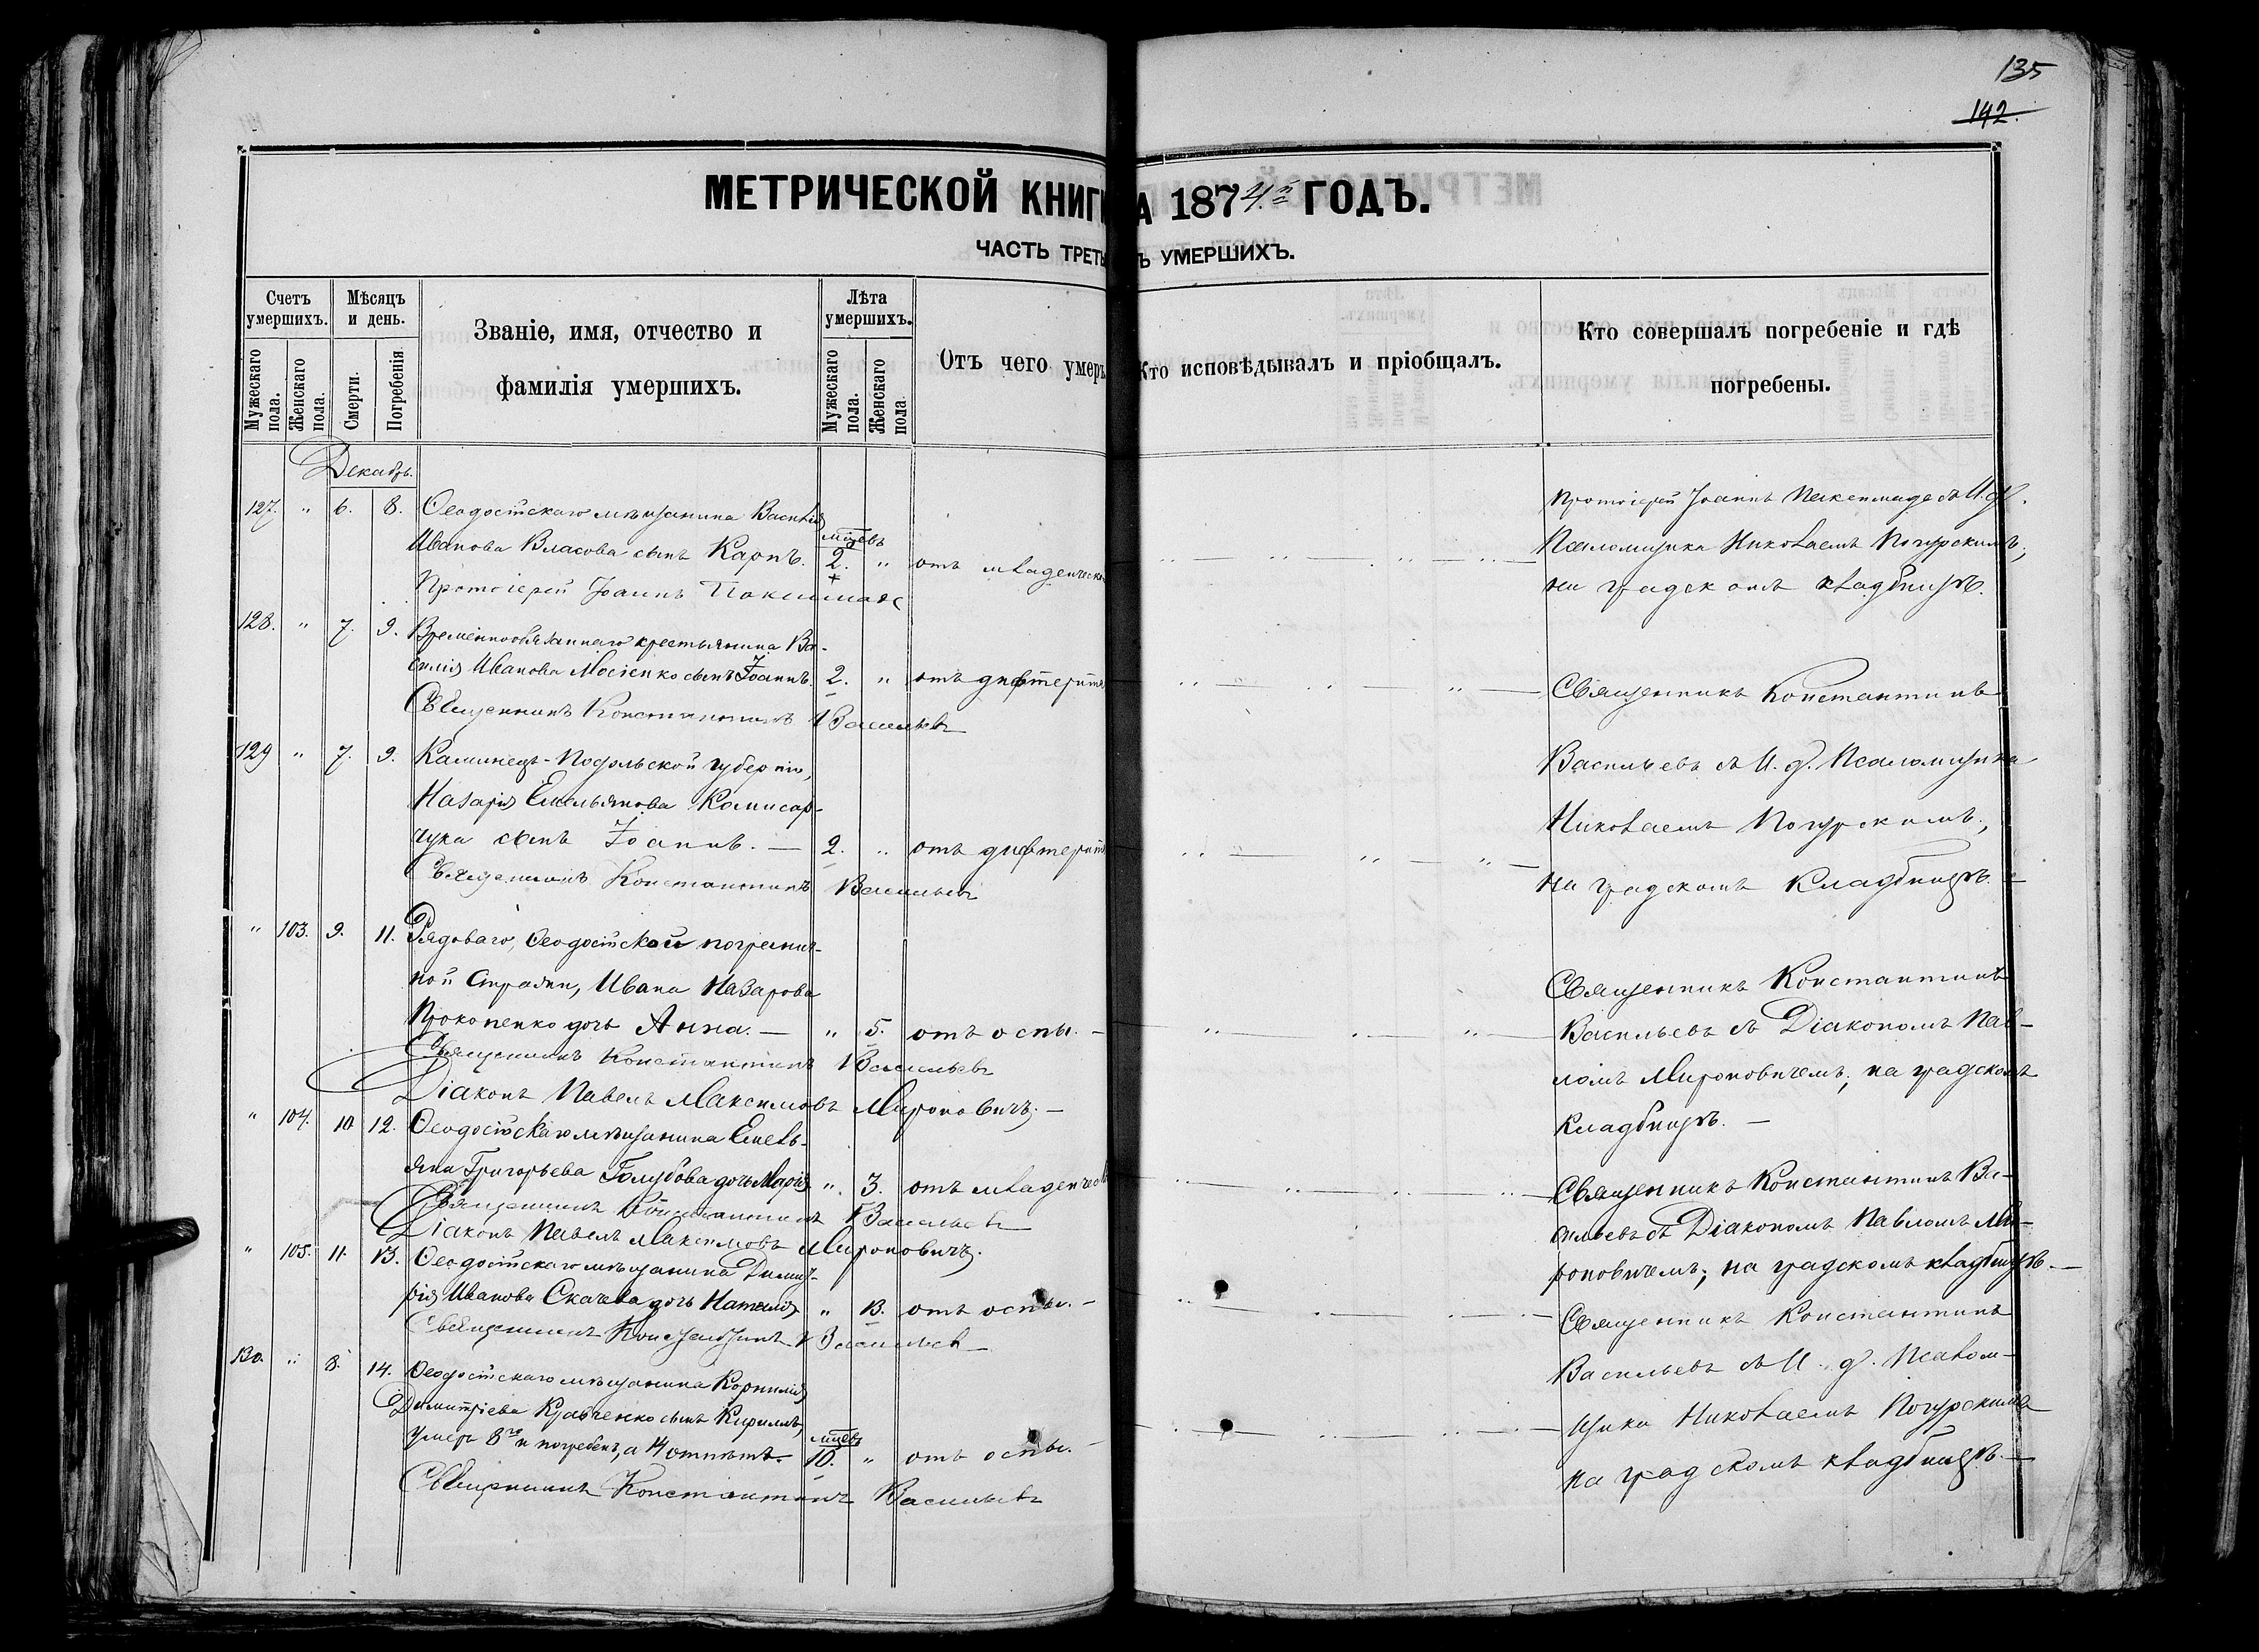 135
142.
МЕТРИЧЕСКОЙ КНИГ А 1874.й ГОДЪ.
ЧАСТЬ ТРЕТЬ Ъ УМЕРШИХЪ.
Счетъ умершихъ.
Мужескаго пола.
Женскаго пола.
Мѣсяцъ и день.
Смерти.
Погребенія.
Званіе, имя, отчество и
фамилія умершихъ.
Лѣта умершихъ.
Мужескаго пола.
Женскаго пола
Отъ чего умеръ
Кто исповѣдывалъ и пріобщалъ.
Кто совершалъ погребеніе и гдѣ
погребены.
Декабрь.
127. " 6. 8. Ѳеодосійскаго мѣщанина Василія
Иванова Власова сынъ Карпъ. мѣцевъ 2. " отъ младенческ
Протоіерей Іоаннъ
Протоіерей Іоаннъ съ И. д.
Псаломщика Николаемъ Погурскимъ,
на градскомъ кладбищѣ.
128. " 7. 9. Временнообязаннаго крестьянина Ва-
силія Иванова Мосіенко сынъ Іоаннъ. 2. " отъ дифтерита
Священникъ Константинъ Васильевъ
129 " 7. 9. Каминецъ-Подольской губерніи,
Назарія Емельянова Комисар-
чука сынъ Іоаннъ. — 2. " отъ дифтерит
Священникъ Константинъ Васильевъ
Священникъ Константинъ
Васильевъ съ И. д. Псаломщика
Николаемъ Погурскимъ,
на градскомъ кладбищѣ. —
" 103. 9. 11. Рядоваго, Ѳеодосійской погранич-
ной стражи, Ивана Назарова
Прокопенко дочь Анна. — " 5. отъ оспы. —
Священникъ Константинъ Васильевъ
Діаконъ Павелъ Максимовъ Мироновичъ. —
Священникъ Константинъ
Васильевъ съ Діакономъ Пав-
ломъ Мироновичемъ; на градскомъ
кладбищѣ. —
" 104. 10 12. Ѳеодосійскаго мѣщанина Емель-
яна Григорьева Голубова дочь Марія " 3. отъ младенческ
Священникъ Константинъ Васильевъ
Діаконъ Павелъ Максимовъ Мироновичъ.
Священникъ Константинъ Ва-
сильевъ съ Діакономъ Павломъ Ми-
роновичемъ; на градскомъ кладбищѣ. —
" 105. 11. 13. Ѳеодосійскаго мѣщанина Димит-
рія Иванова Скачева дочь Наталія " 13. отъ оспы. —
Священникъ Константинъ Васильевъ
130. " 8. 14. Ѳеодосійскаго мѣщанина Корнилія
Димитріева Кравченко сынъ Кириллъ,
умеръ 8го и погребенъ, а 14 отпѣтъ. — мѣцевъ 10. " отъ оспы. —
Священникъ Константинъ Васильевъ
Священникъ Константинъ
Васильевъ съ И. д. Псалом-
щика Николаемъ Погурскимъ
на градскомъ кладбищѣ. —